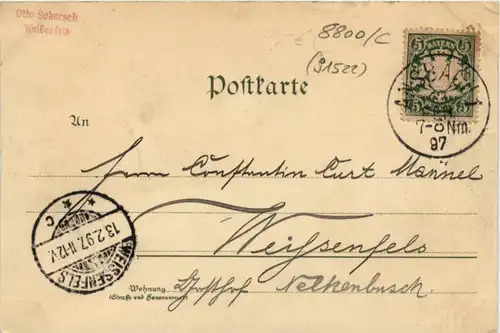 Otto Sekorsch
Weißenfels
8800/C
(91522)
5 BAYERN 5
ANSBACH 1
7-8 Nm.
97
Postkarte
An
Herrn Constantin Curt Männel
Weißenfels
WEISSENFELS
13.2.97. 11-12V.
* C *
Wohnung
(Straße und Hausnummer)
Nelkenbusch.